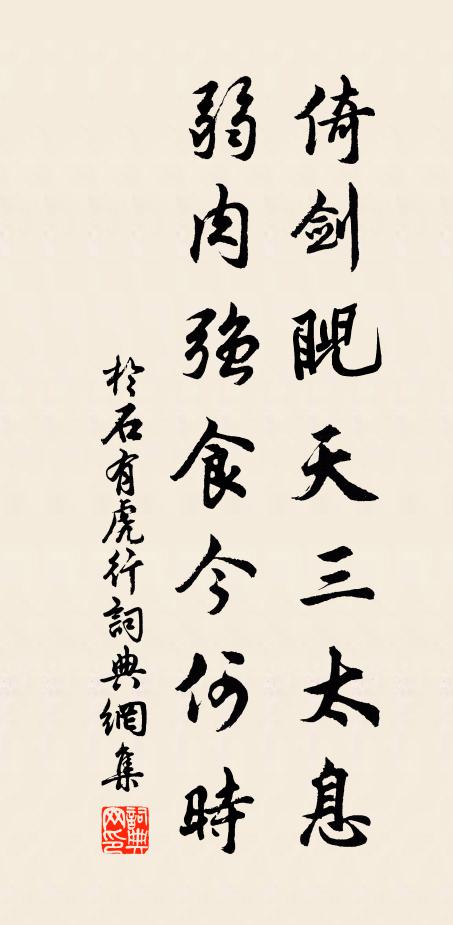 倚劍睨天三太息
弱肉強食今何時
於石有虎行詞典網集
詞典網印